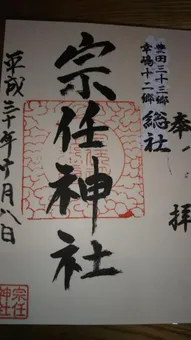 奉拝
豊田三十三郷
幸嶋十二郷
総社
宗任神社
平成三十年十月八日
宗任
神社